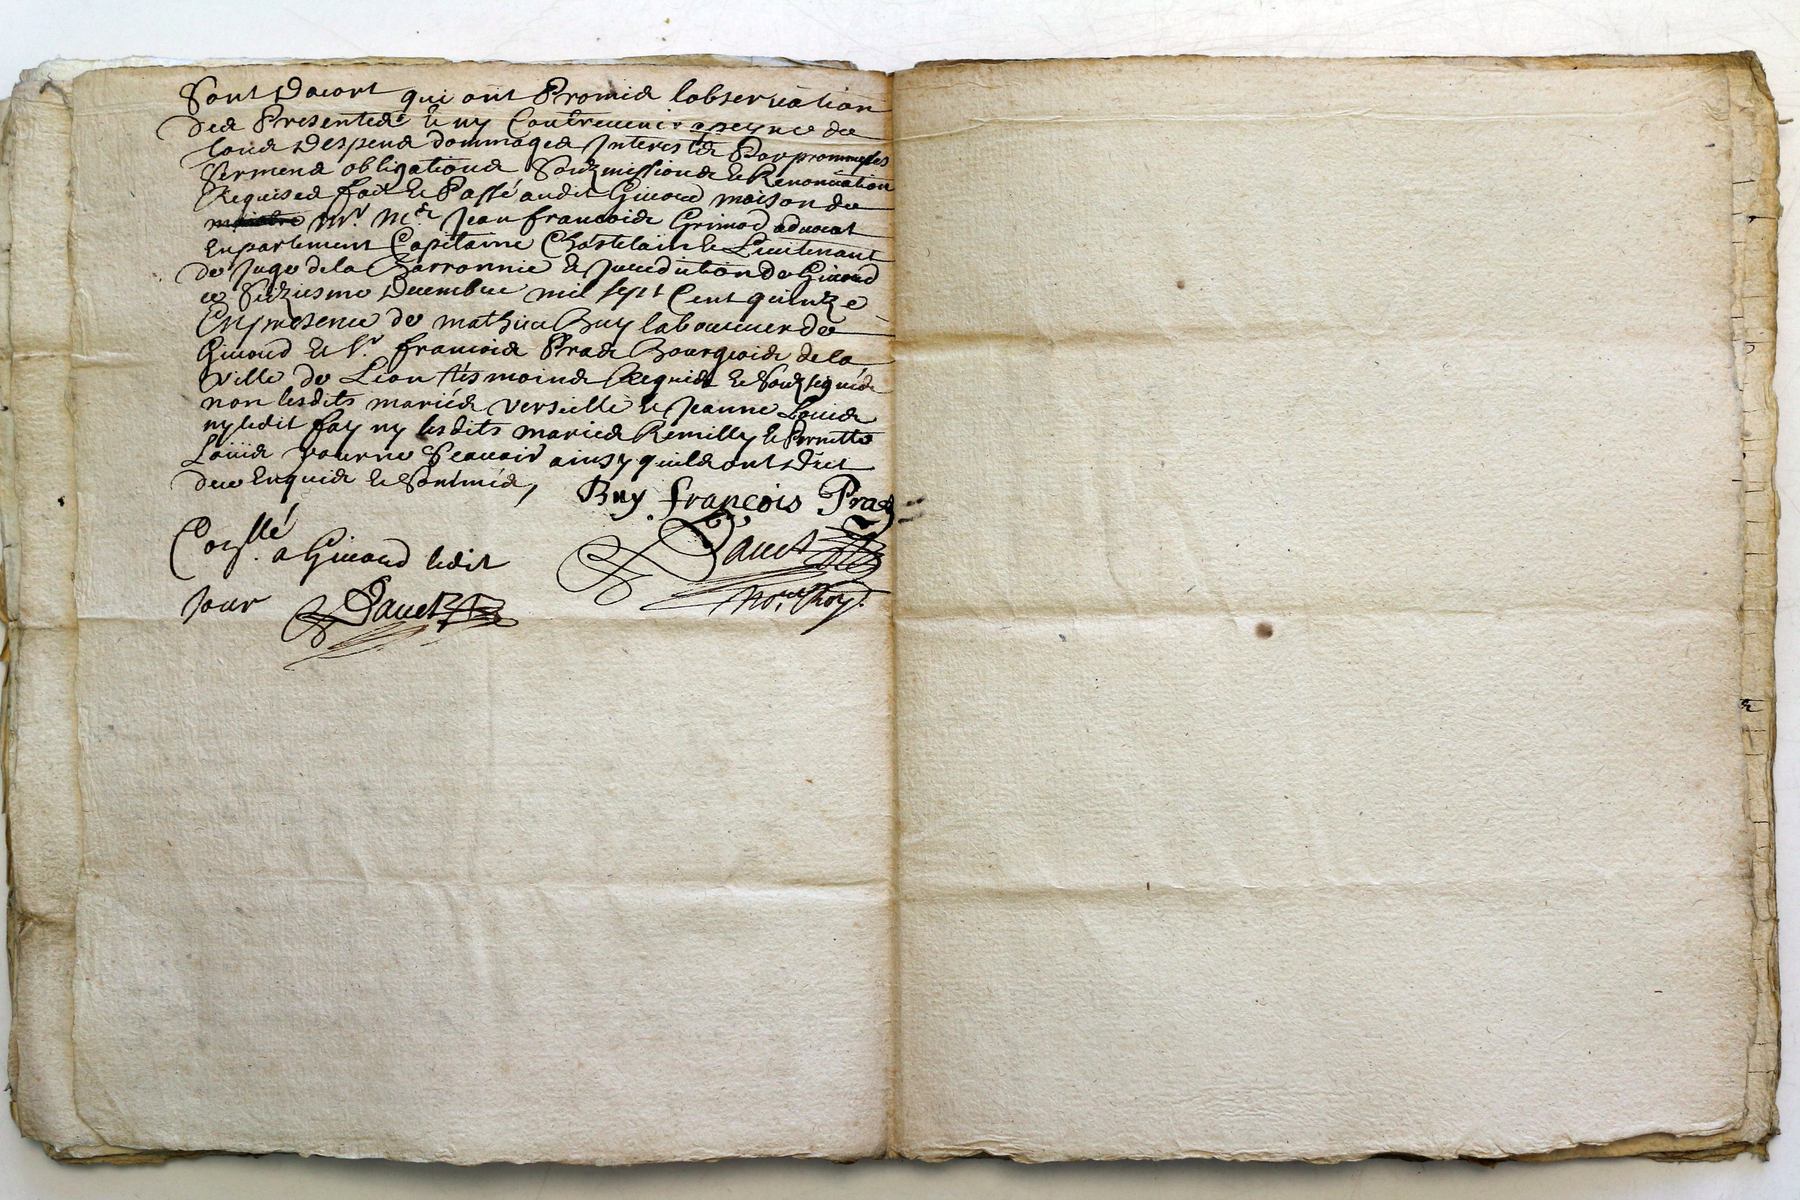 Sont Dacort qui ont Promis lobservation
des Presentes & ny Contrevenir a peyne de
tous Despens dommages Interests Par promesses
sermens obligations Soubzmissions & Renonciation
Requises fait & Passé audit Givord maison de
Mr. Me. Jean francois Grimod advocat
En parlement Capitaine Chastelain & Lieutenant
de Juge de la Barronnie & Juridiction de Givord
ce Seiziesme Decembre mil sept Cent quinze
En presence de mathieu Buy laboureur de
Givord & Sr. francois Prads Bourgeois de la
Ville de Lion tesmoins Requis & Soubsignés
non lesdits mariés & Jeanne Louis
ny ledit fay ny lesdits mariés Remilly & Pernette
Louis pour ne Scavoir ainsy quils ont dict
de ce Enquis & Sommés,
Buy françois Prads
Dauet
Notre Roy.
Con.llé a Givord ledit
Jour Dauet